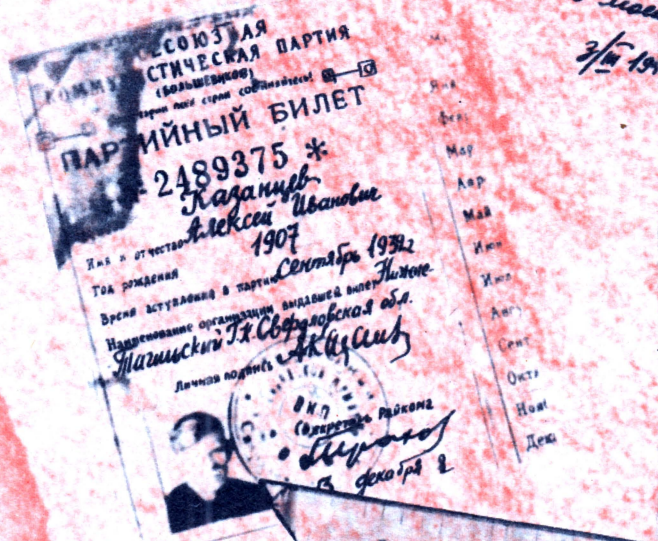 СЕСОЮЗНАЯ
КОММУ СТИЧЕСКАЯ ПАРТИЯ
(БОЛЬШЕВИКОВ)
всех стран соединяйтесь!
ПАРТИЙНЫЙ БИЛЕТ
2489375 *
Казанцев
Имя и отчество Алексей Иванович
Год рождения 1907
Время вступления в партию Сентябрь 1939г
Наименование организации, выдавшей билет Нижне-
Тагильский Г.К. Свердловская обл.
Личная подпись АКазанц
ВКП
Секретарь Райкома
декабря
Янв
Фев
Мар
Апр
Май
Июн
Июл
Авгу
Сент
Октя
Нояб
Дека
3/III 194